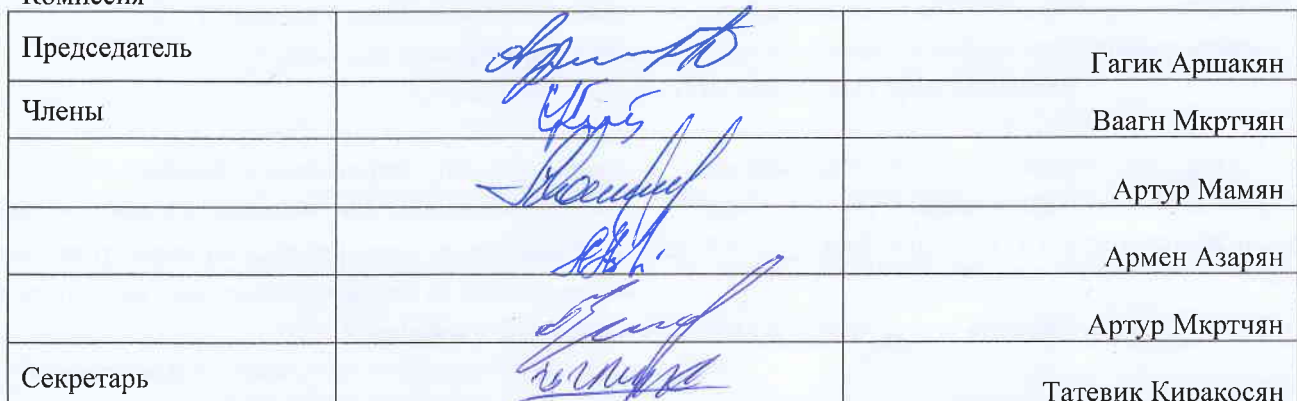 Комиссия
Председатель Гагик Аршакян
Члены Ваагн Мкртчян
Артур Мамян
Армен Азарян
Артур Мкртчян
Секретарь Татевик Киракосян